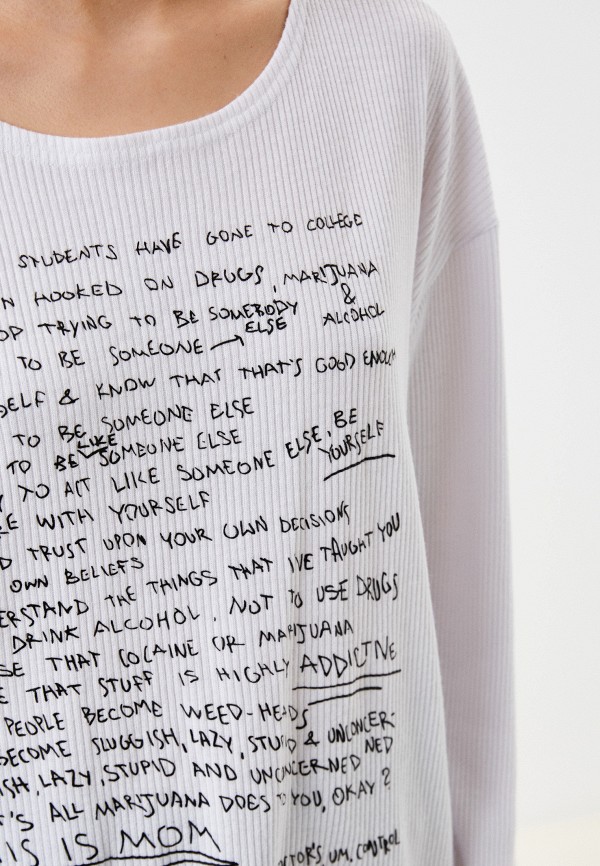 STUDENTS HAVE GONE TO COLLEGE
N HOOKED ON DRUGS, MARIJUANA
& ALCOHOL
OP TRYING TO BE SOMEBODY ELSE
TO BE SOMEONE
SELF & KNOW THAT THAT'S GOOD ENOUGH
TO BE SOMEONE ELSE
TO BE LIKE SOMEONE ELSE
Y TO ACT LIKE SOMEONE ELSE, BE YOURSELF
RE WITH YOURSELF
D TRUST UPON YOUR OWN DECISIONS
OWN BELIEFS
ERSTAND THE THINGS THAT I'VE TAUGHT YOU
DRINK ALCOHOL, NOT TO USE DRUGS
SE THAT COCAINE OR MARIJUANA
E THAT STUFF IS HIGHLY ADDICTIVE
PEOPLE BECOME WEED-HEADS
BECOME SLUGGISH, LAZY, STUPID & UNCONCERNED
ISH, LAZY, STUPID AND UNCONCERNED
T'S ALL MARIJUANA DOES TO YOU, OKAY?
IS IS MOM
CTOR'S UM, CONTROL